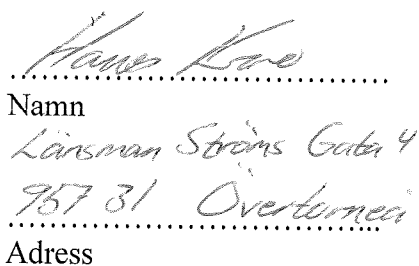 Hannes
Namn
Länsman Ströms Gata 4
957 31 Övertorneå
Adress